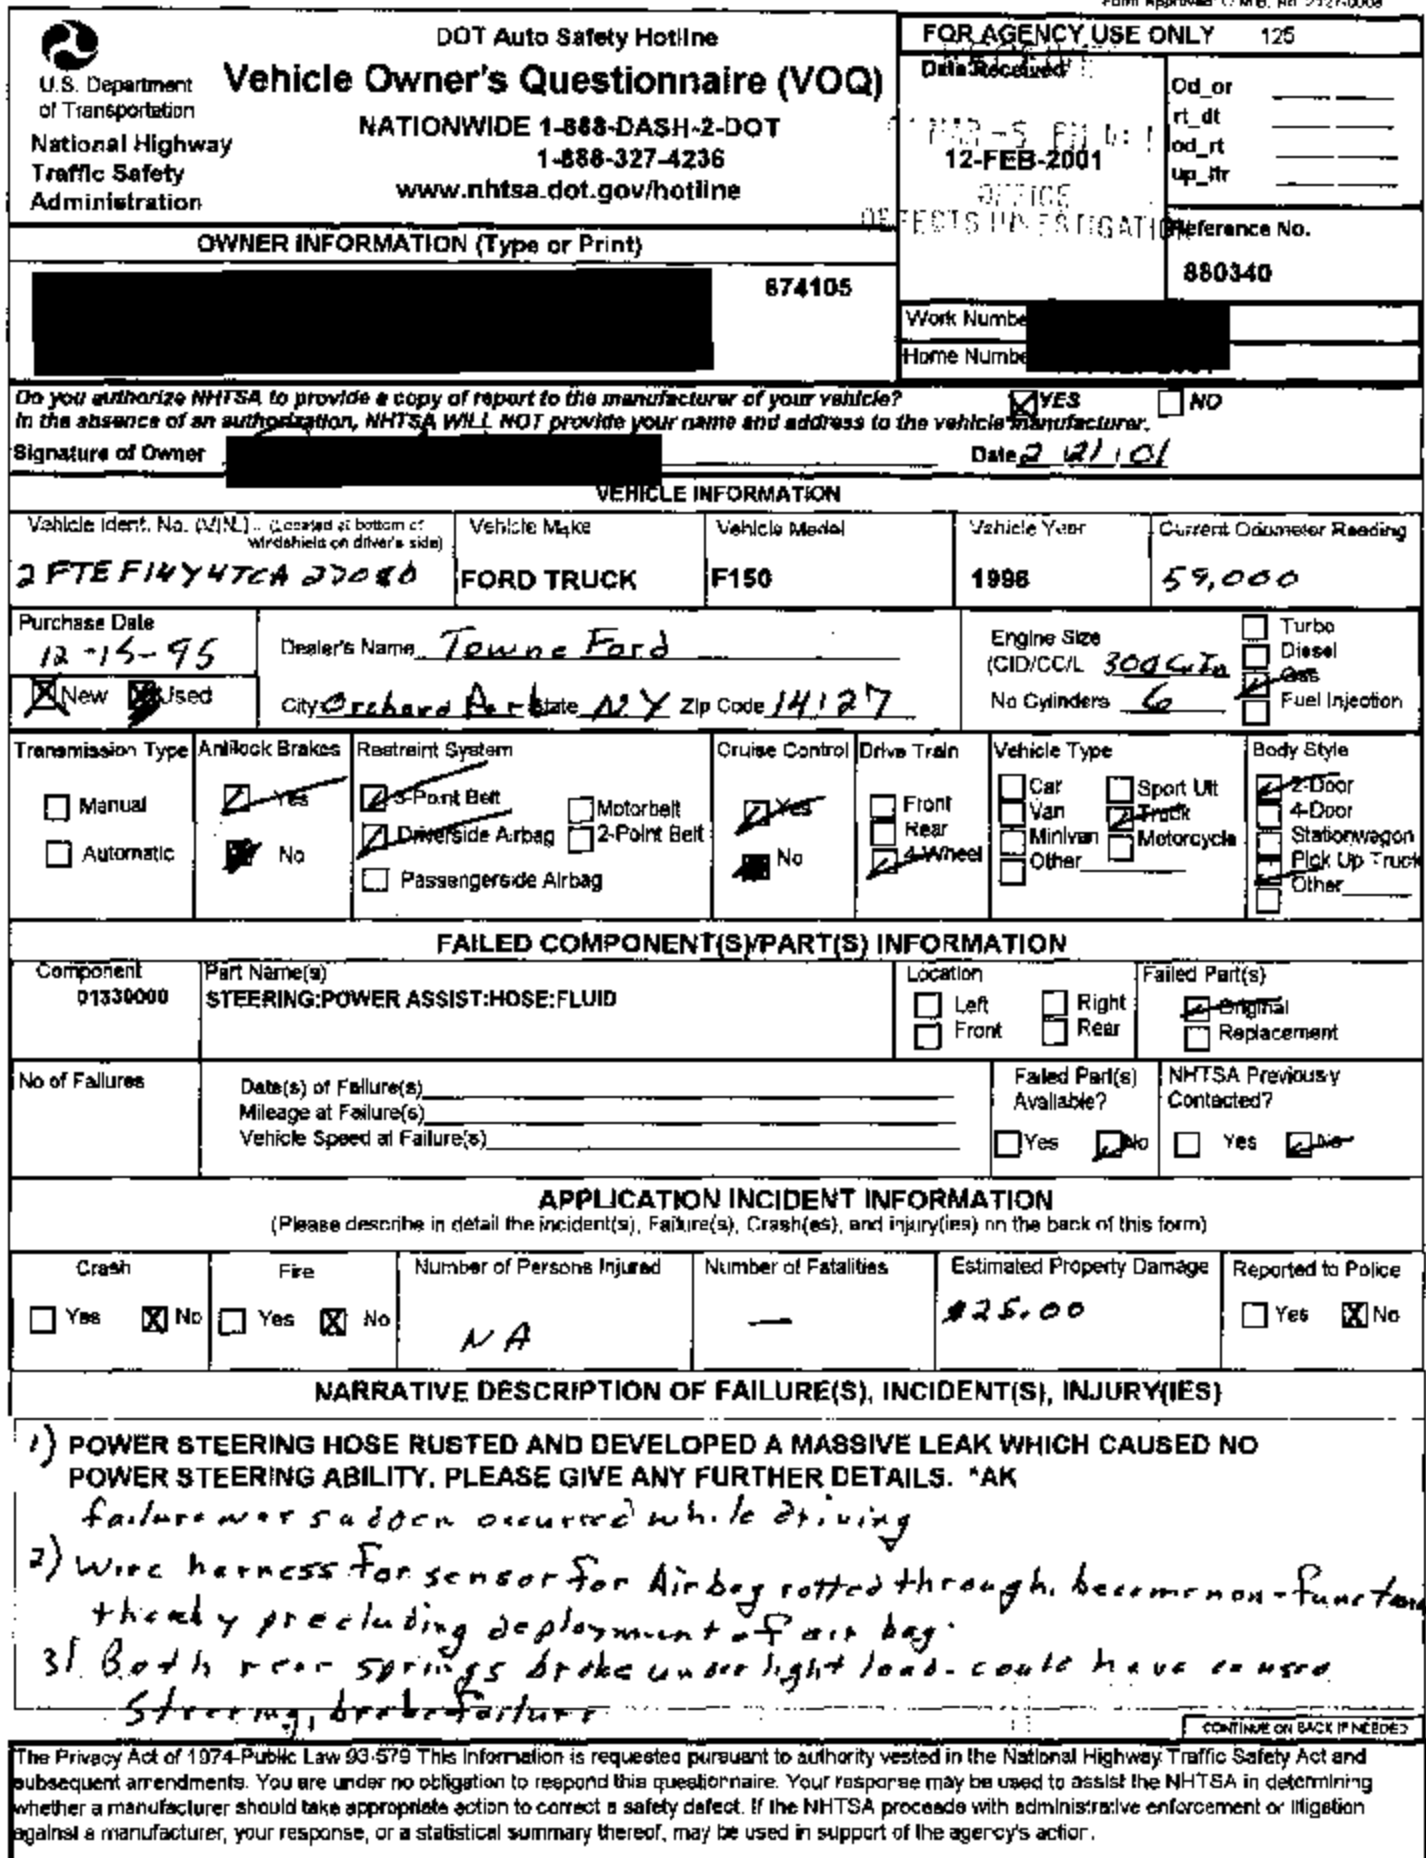 Form Approved: O.M.B. No. 2127-0008
U.S. Department
of Transportation
National Highway
Traffic Safety
Administration
DOT Auto Safety Hotline
Vehicle Owner's Questionnaire (VOQ)
NATIONWIDE 1-888-DASH-2-DOT
1-888-327-4236
www.nhtsa.dot.gov/hotline
FOR AGENCY USE ONLY 125
Date Received
12-FEB-2001
OFFICE
DEFECTS INVESTIGATION
Od_or
rt_dt
od_rt
up_ltr
Reference No.
880340
OWNER INFORMATION (Type or Print)
874105
Work Numbe
Home Numbe
Do you authorize NHTSA to provide a copy of report to the manufacturer of your vehicle? YES NO
In the absence of an authorization, NHTSA WILL NOT provide your name and address to the vehicle manufacturer.
Signature of Owner Date 2 / 21 / 01
VEHICLE INFORMATION
Vehicle Ident. No. (VIN.) (Located at bottom of
windshield on driver's side)
2FTEF14Y4TCA
Vehicle Make
FORD TRUCK
Vehicle Model
F150
Vehicle Year
1996
Current Odometer Reading
59,000
Purchase Date
12-15-95
New Used
Dealer's Name Towne Ford
City Orchard Park State NY Zip Code 14127
Engine Size
(CID/CC/L 300 C In
No Cylinders 6
Turbo
Diesel
Gas
Fuel Injection
Transmission Type
Manual
Automatic
Antilock Brakes
Yes
No
Restraint System
3-Point Belt
Driverside Airbag
Passengerside Airbag
Motorbelt
2-Point Belt
Cruise Control
Yes
No
Drive Train
Front
Rear
4-Wheel
Vehicle Type
Car
Van
Minivan
Other
Sport Ult
Truck
Motorcycle
Body Style
2-Door
4-Door
Stationwagon
Pick Up Truck
Other
FAILED COMPONENT(S)/PART(S) INFORMATION
Component
01330000
Part Name(s)
STEERING:POWER ASSIST:HOSE:FLUID
Location
Left Right
Front Rear
Failed Part(s)
Original
Replacement
No of Failures
Date(s) of Failure(s)
Mileage at Failure(s)
Vehicle Speed at Failure(s)
Failed Part(s)
Available?
Yes No
NHTSA Previously
Contacted?
Yes No
APPLICATION INCIDENT INFORMATION
(Please describe in detail the incident(s), Failure(s), Crash(es), and injury(ies) on the back of this form)
Crash
Yes No
Fire
Yes No
Number of Persons Injured
NA
Number of Fatalities
—
Estimated Property Damage
$25.00
Reported to Police
Yes No
NARRATIVE DESCRIPTION OF FAILURE(S), INCIDENT(S), INJURY(IES)
1) POWER STEERING HOSE RUSTED AND DEVELOPED A MASSIVE LEAK WHICH CAUSED NO
POWER STEERING ABILITY. PLEASE GIVE ANY FURTHER DETAILS. *AK
failure was sudden occurred while driving
2) Wire harness for sensor for Airbag rotted through, become non-function
thereby precluding deployment of air bag.
3) Both rear springs broke under light load - could have caused
Steering, brake failure
CONTINUE ON BACK IF NEEDED
The Privacy Act of 1974-Public Law 93-579 This information is requested pursuant to authority vested in the National Highway Traffic Safety Act and
subsequent amendments. You are under no obligation to respond this questionnaire. Your response may be used to assist the NHTSA in determining
whether a manufacturer should take appropriate action to correct a safety defect. If the NHTSA proceeds with administrative enforcement or litigation
against a manufacturer, your response, or a statistical summary thereof, may be used in support of the agency's action.